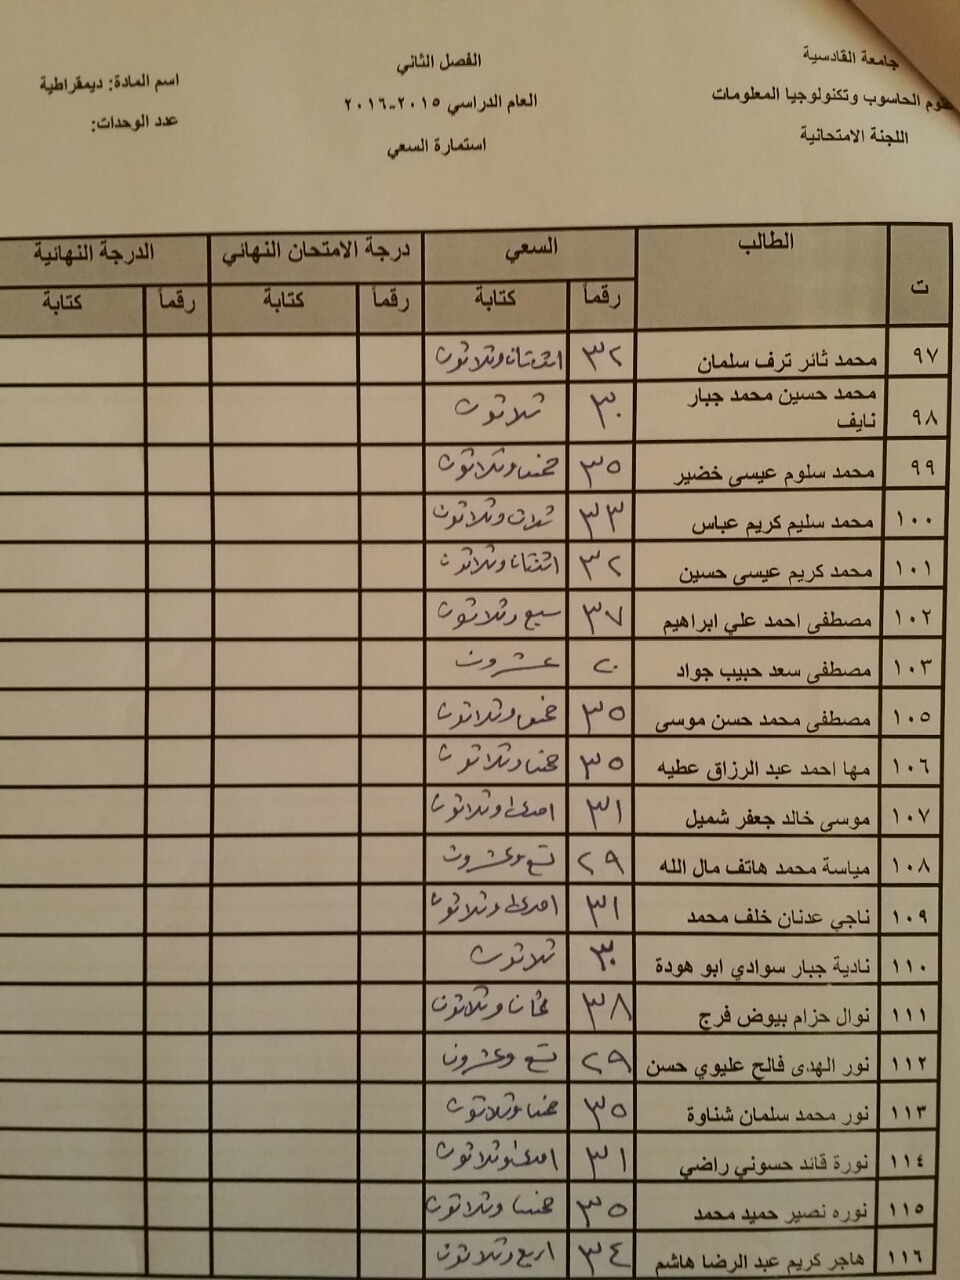 جامعة القادسية
علوم الحاسوب وتكنولوجيا المعلومات
اللجنة الامتحانية
الفصل الثاني
العام الدراسي ٢٠١٥-٢٠١٦
استمارة السعي
اسم المادة: ديمقراطية
عدد الوحدات:
ت الطالب السعي درجة الامتحان النهائي الدرجة النهائية
رقماً كتابة رقماً كتابة رقماً كتابة
٩٧ محمد ثائر ترف سلمان ٣٢ اثنتان وثلاثون
٩٨ محمد حسين محمد جبار نايف ٣٠ ثلاثون
٩٩ محمد سلوم عيسى خضير ٣٥ خمس وثلاثون
١٠٠ محمد سليم كريم عباس ٣٣ ثلاث وثلاثون
١٠١ محمد كريم عيسى حسين ٣٢ اثنتان وثلاثون
١٠٢ مصطفى احمد علي ابراهيم ٣٧ سبع وثلاثون
١٠٣ مصطفى سعد حبيب جواد ٢٠ عشرون
١٠٥ مصطفى محمد حسن موسى ٣٥ خمس وثلاثون
١٠٦ مها احمد عبد الرزاق عطيه ٣٥ خمس وثلاثون
١٠٧ موسى خالد جعفر شميل ٣١ احدى وثلاثون
١٠٨ مياسة محمد هاتف مال الله ٢٩ تسع وعشرون
١٠٩ ناجي عدنان خلف محمد ٣١ احدى وثلاثون
١١٠ نادية جبار سوادي ابو هودة ٣٠ ثلاثون
١١١ نوال حزام بيوض فرج ٣٨ ثمان وثلاثون
١١٢ نور الهدى فالح عليوي حسن ٢٩ تسع وعشرون
١١٣ نور محمد سلمان شناوة ٣٥ خمس وثلاثون
١١٤ نورة قائد حسوني راضي ٣١ احدى وثلاثون
١١٥ نوره نصير حميد محمد ٣٥ خمس وثلاثون
١١٦ هاجر كريم عبد الرضا هاشم ٣٤ اربع وثلاثون